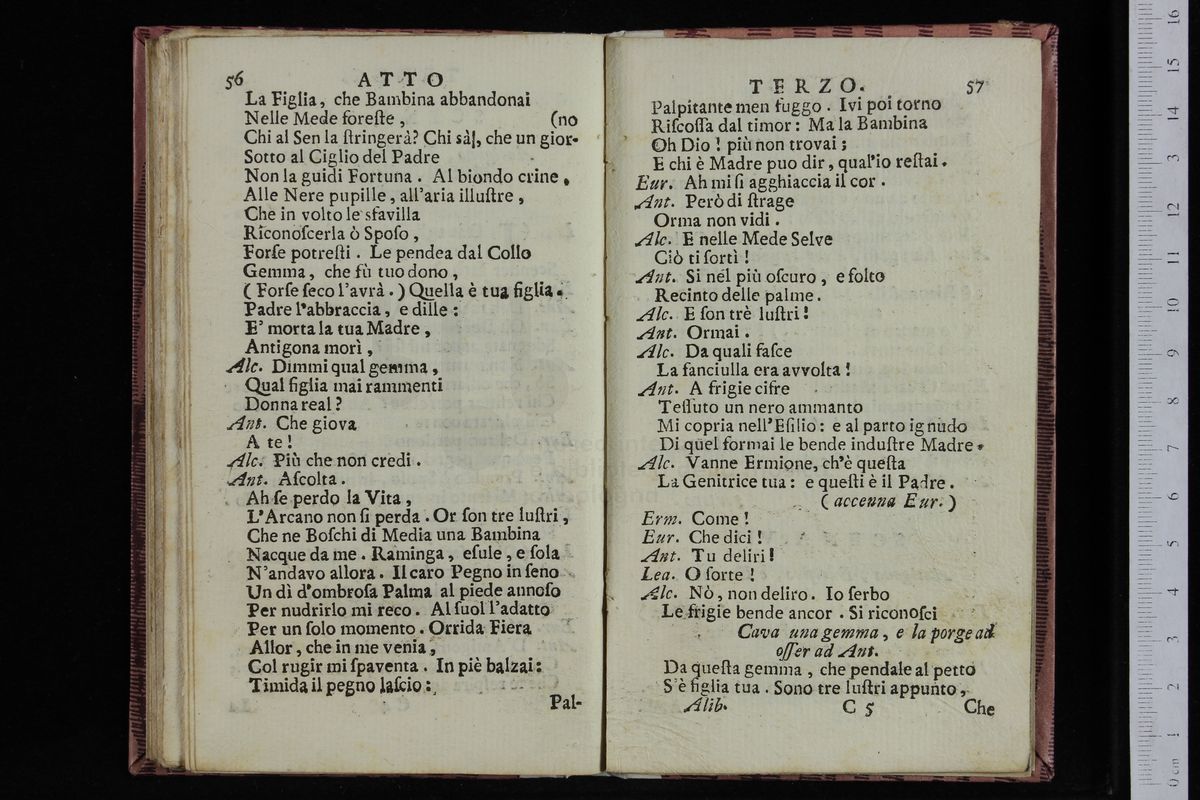 56 ATTO
La Figlia, che Bambina abbandonai
Nelle Mede foreſte, (no
Chi al Sen la ſtringerà? Chi sà, che un gior-
Sotto al Ciglio del Padre
Non la guidi Fortuna. Al biondo crine,
Alle Nere pupille, all'aria illuſtre,
Che in volto le sfavilla
Riconoſcerla ò Spoſo,
Forſe potreſti. Le pendea dal Collo
Gemma, che fù tuo dono,
(Forſe ſeco l'avrà.) Quella è tua figlia.
Padre l'abbraccia, e dille:
E' morta la tua Madre,
Antigona morì,
Alc. Dimmi qual gemma,
Qual figlia mai rammenti
Donna real?
Ant. Che giova
A te!
Alc. Più che non credi.
Ant. Aſcolta.
Ah ſe perdo la Vita,
L'Arcano non ſi perda. Or ſon tre luſtri,
Che ne Boſchi di Media una Bambina
Nacque da me. Raminga, eſule, e ſola
N'andavo allora. Il caro Pegno in ſeno
Un dì d'ombroſa Palma al piede annoſo
Per nudrirlo mi reco. Al ſuol l'adatto
Per un ſolo momento. Orrida Fiera
Allor, che in me venia,
Col rugir mi ſpaventa. In piè balzai:
Timida il pegno laſcio:
Pal-
TERZO. 57
Palpitante men fuggo. Ivi poi torno
Riſcoſſa dal timor: Ma la Bambina
Oh Dio! più non trovai;
E chi è Madre puo dir, qual'io reſtai.
Eur. Ah mi ſi agghiaccia il cor.
Ant. Però di ſtrage
Orma non vidi.
Alc. E nelle Mede Selve
Ciò ti ſortì!
Ant. Si nél più oſcuro, e folto
Recinto delle palme.
Alc. E ſon trè luſtri!
Ant. Ormai.
Alc. Da quali faſce
La fanciulla era avvolta!
Ant. A frigie cifre
Teſſuto un nero ammanto
Mi copria nell'Eſilio: e al parto ignudo
Di quel formai le bende induſtre Madre.
Alc. Vanne Ermione, ch'è queſta
La Genitrice tua: e queſti è il Padre.
(accenna Eur.)
Erm. Come!
Eur. Che dici!
Ant. Tu deliri!
Lea. O ſorte!
Alc. Nò, non deliro. Io ſerbo
Le frigie bende ancor. Si riconoſci
Cava una gemma, e la porge ad
oſſer ad Ant.
Da queſta gemma, che pendale al petto
S'è figlia tua. Sono tre luſtri appunto,
Alib. C 5 Che